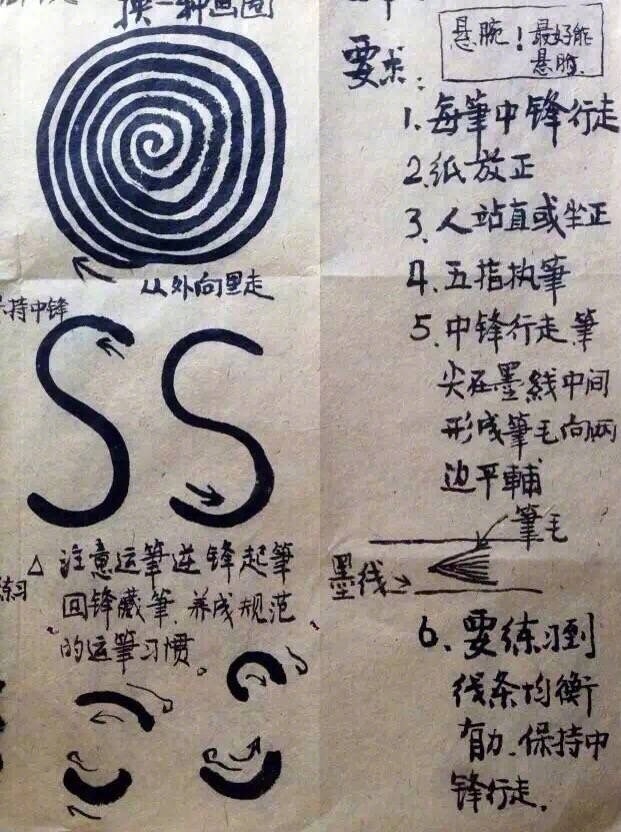 换一种画圈
从外向里走
保持中锋
△ 注意运筆逆锋起筆
回锋藏筆.养成规范
的运筆习惯。
练习
悬腕！最好能
悬肘.
要求：
1、每筆中锋行走
2.纸放正
3、人站直或坐正
4、五指执筆
5、中锋行走.筆
尖在墨线中间
形成筆毛向两
边平輔
筆毛
墨线
6、要练习到
线条均衡
有力.保持中
锋行走.